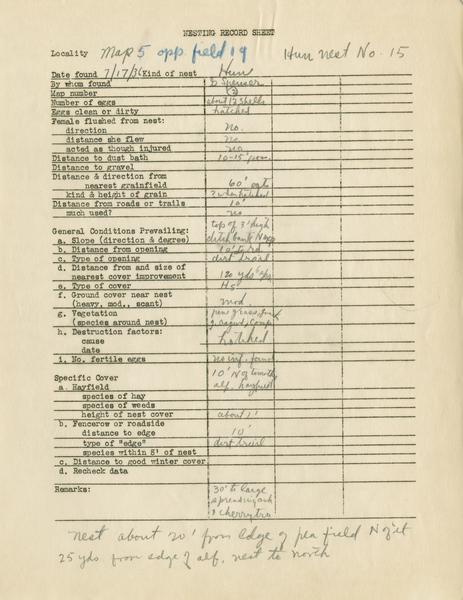 NESTING RECORD SHEET
Locality Map 5 opp field 19 Hun nest No. 15
Date found 7/17/36 Kind of nest Hun
By whom found D Spencer
Map number
Number of eggs about 12 shells
Eggs clean or dirty hatched
Female flushed from nest:
direction no.
distance she flew no.
acted as though injured no
Distance to dust bath 10-15'
Distance to gravel
Distance & direction from
nearest grainfield 60' oats
kind & height of grain ? when hatched
Distance from roads or trails 10'
much used? no
General Conditions Prevailing: top of 3' high
a. Slope (direction & degree) ditch bank N
b. Distance from opening 10' to rd
c. Type of opening dirt trail
d. Distance from and size of
nearest cover improvement 120 yds
e. Type of cover H5
f. Ground cover near nest
(heavy, mod., scant) mod.
g. Vegetation
(species around nest)
h. Destruction factors:
cause hatched
date
i. No. fertile eggs no inf. found
Specific Cover 10' N of timothy
a. Hayfield alf. hayfield
species of hay
species of weeds
height of nest cover about 1'
b. Fencerow or roadside
distance to edge 10'
type of "edge" dirt trail
species within 5' of nest
c. Distance to good winter cover
d. Recheck data
Remarks: 30' to large
spreading oak
& cherry tree
nest about 20' from edge of pea field N of it
25 yds from edge of alf. nest to north